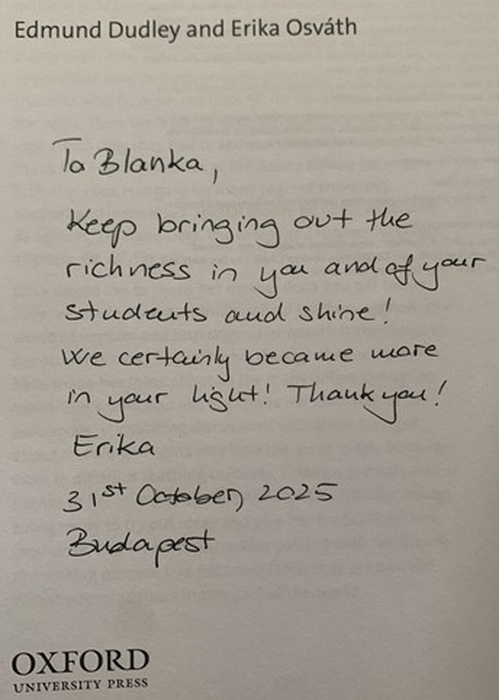 Edmund Dudley and Erika Osváth
To Blanka,
Keep bringing out the
richness in you and of your
students and shine!
We certainly became more
in your light! Thank you!
Erika
31st October, 2025
Budapest
OXFORD
UNIVERSITY PRESS